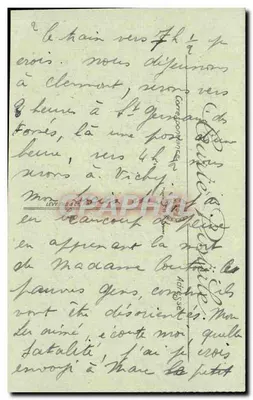 le train vers 7h 1/2 je
crois. nous déjeunons
à clermont, serons vers
2 heures à St Germain des
Fossés, là une pose d'une
heure, vers 4h nous
serons à Vichy.
Mon
en beaucoup de peine
en apprenant la mort
de Madame ces
pauvres gens, comme ils
vont être désorientés. Mon
aimé, écoute moi, quelle
fatalité, j'ai je crois
envoyé à Marc le petit
Correspondance
Adresse
CPAPHIL